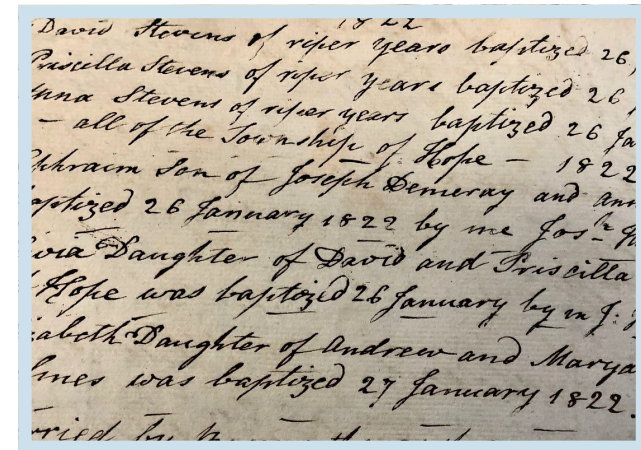 1822
David Stevens of riper years baptized 26,
Priscilla Stevens of riper years baptized 26
Anna Stevens of riper years baptized 26 Ja
— all of the Township of Hope — 1822
Ephraim Son of Joseph Demeray and ann
baptized 26 January 1822 by me Josh
Daughter of David and Priscilla
Hope was baptized 26 January by m J:
zabeth Daughter of Andrew and Marya
was baptized 27 January 1822.
rried by